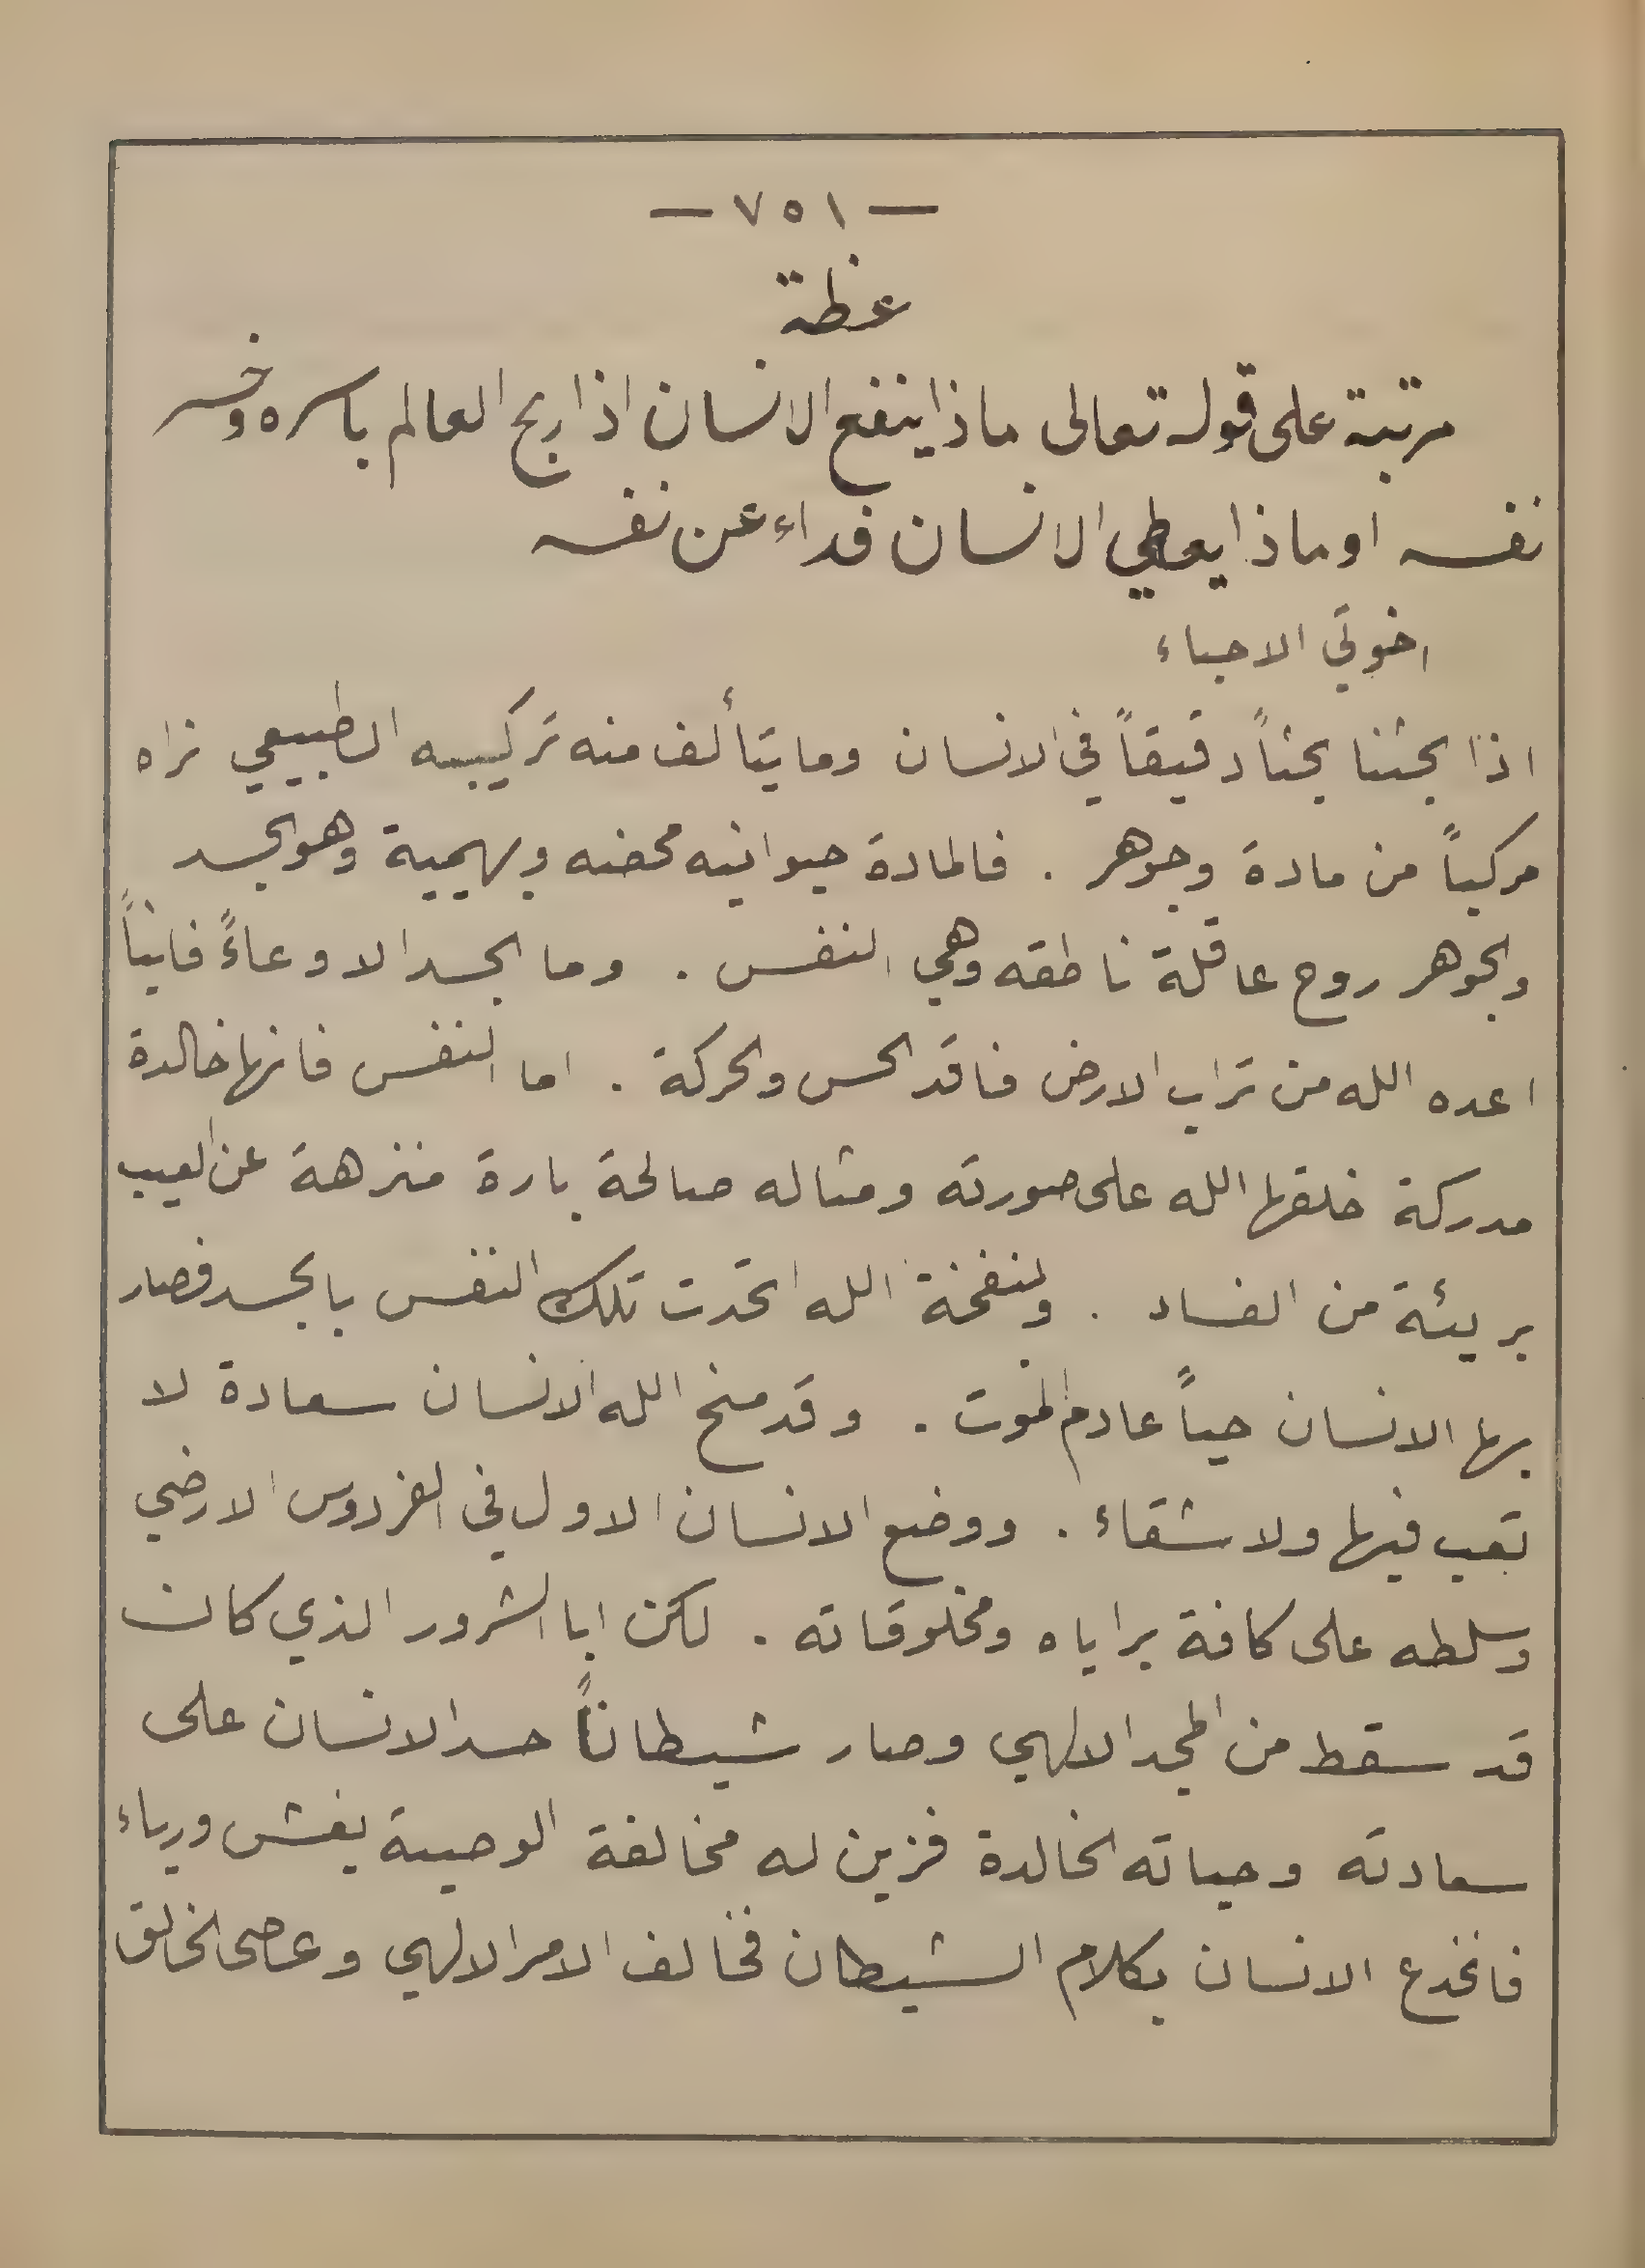 — ٧٥١ —
عظة
مرتبة على قوله تعالى ماذا ينفع الانسان اذا ربح العالم باسره وخسر
نفسه او ماذا يعطي الانسان فداء عن نفسه
اخوتي الاحباء
اذا بحثنا بحثاً دقيقاً في الانسان وما يتألف منه تركيبه الطبيعي نراه
مركباً من مادة وجوهر . فالمادة حيوانيه محضه وبهيمية وهو الجسد
والجوهر روح عاقلة ناطقه وهي النفس . وما الجسد الا وعاءً فانياً
اعده الله من تراب الارض فاقد الحس والحركة . اما النفس فانها خالدة
مدركة خلقها الله على صورته ومثاله صالحة بارة منزهة عن العيب
بريئة من الفساد . وبنفخة الله اتحدت تلك النفس بالجسد فصار
بها الانسان حياً عادم الموت . وقد منح الله الانسان سعادة لا
تعب فيها ولا شقاء . ووضع الانسان الاول في الفردوس الارضي
وسلطه على كافة براياه ومخلوقاته . لكن ابا الشرور الذي كان
قد سقط من المجد الالهي وصار شيطاناً حسد الانسان على
سعادته وحياته الخالدة فزين له مخالفة الوصية بغش ورياء
فانخدع الانسان بكلام الشيطان فخالف الامر الالهي وعصى الخالق